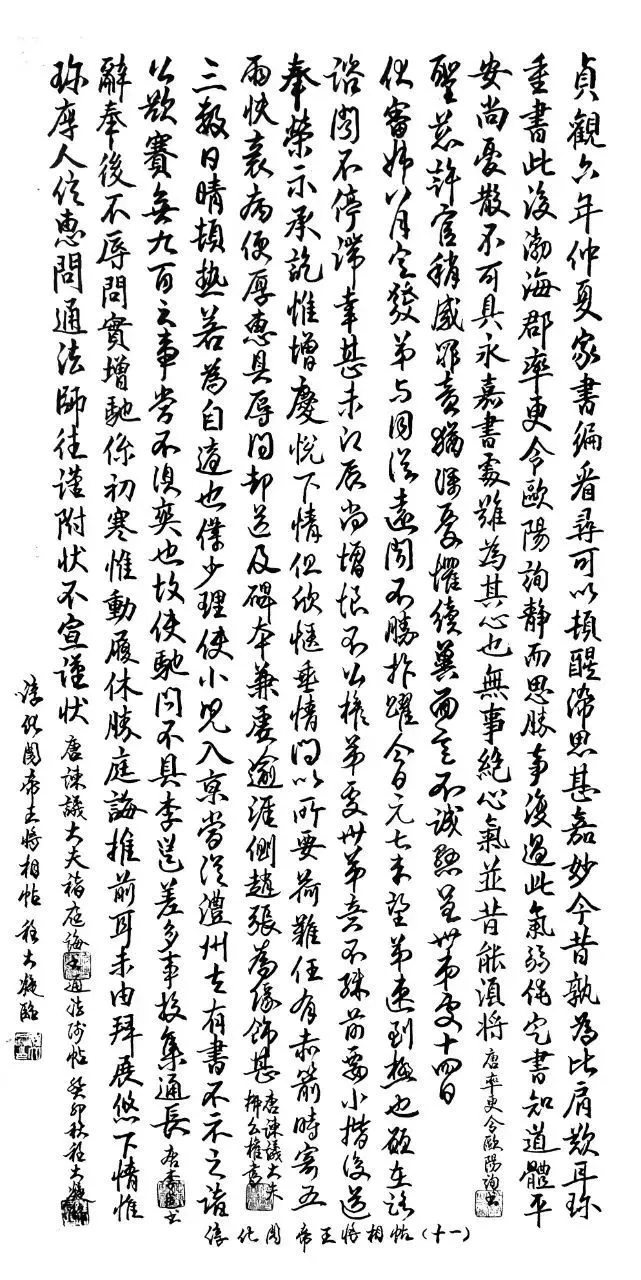 貞觀六年仲夏家書徧看尋可以頓醒滯思甚嘉妙今昔孰為比肩歟耳珎
重書此後渤海郡率更令歐陽詢靜而思勝事復過此氣弱俟定書知道體平
安尚憂散不可具永嘉書處雖為其心也無事絕心氣並昔能須將 唐率更令歐陽詢書
聖慈許官稍減罪責猶深憂懼續冀面言不誠懇至卅弟處十四日
伏審姊八月定發弟与同從遠聞不勝抃躍今日元七未望弟速到極也願在路
諮聞不停滯幸甚未訂辰尚增恨不公權弟處卅弟竟不殊前要小楷後送
奉榮示承訖惟增慶悅下情但欣愜垂情問以所要荷難任有赤箭時寄五
兩快衰病便厚惠具辱問却送及碑本兼屡逾涯側趙張為緣飾甚 唐諫議大夫柳公權書
三數日晴頓熱若為自適也僕少理使小児入京當從澧州去有書不示之諸
公欲賽無九百之事嘗不俱奕也故使馳問不具李邕差多事投集通長 唐李邕書
辭奉後不辱問實增馳係初寒惟動履休勝庭誨推前耳未由拜展悠下情惟
珎厚人信惠問通法師往謹附状不宣謹状 唐諫議大夫褚庭誨 通法師帖 癸卯秋程大
淳化閣帝王将相帖 程大 臨
淳化閣帝王将相帖(十一)